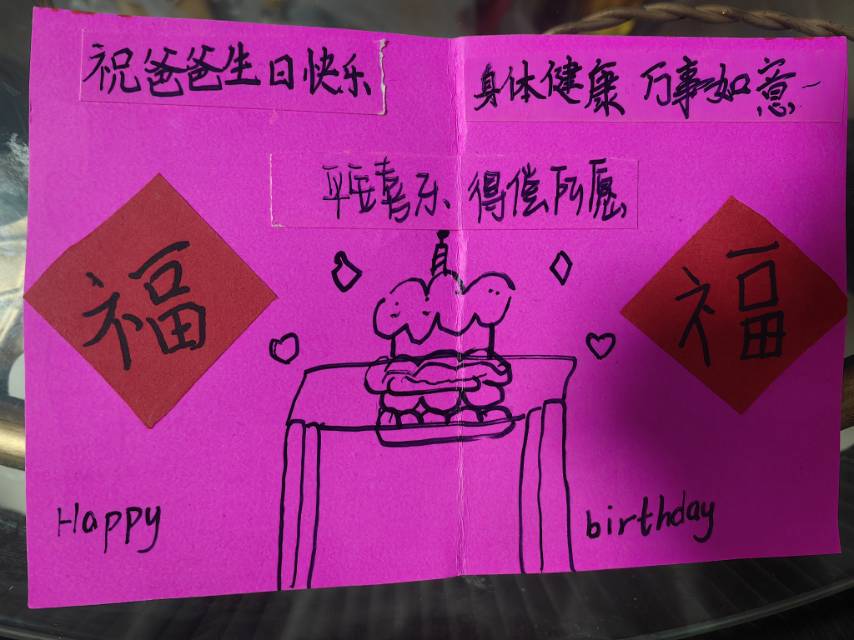 祝爸爸生日快乐
身体健康 万事如意~
平安喜乐 得偿所愿
福
福
Happy
birthday